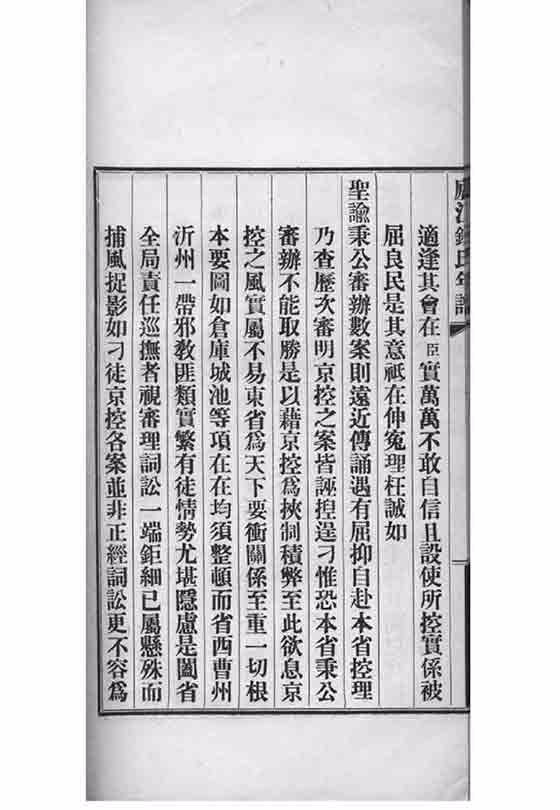 適逢其會在臣實萬萬不敢自信且設使所控實係被
屈良民是其意祗在伸寃理枉誠如
聖諭秉公審辦數案則遠近傳誦遇有屈抑自赴本省控理
乃查歷次審明京控之案皆誣揑逞刁惟恐本省秉公
審辦不能取勝是以藉京控爲挾制積弊至此欲息京
控之風實屬不易東省爲天下要衝關係至重一切根
本要圖如倉庫城池等項在在均須整頓而省西曹州
沂州一帶邪敎匪類實繁有徒情勢尤堪隱慮是闔省
全局責任巡撫者視審理詞訟一端鉅細已屬懸殊而
捕風捉影如刁徒京控各案並非正經詞訟更不容爲